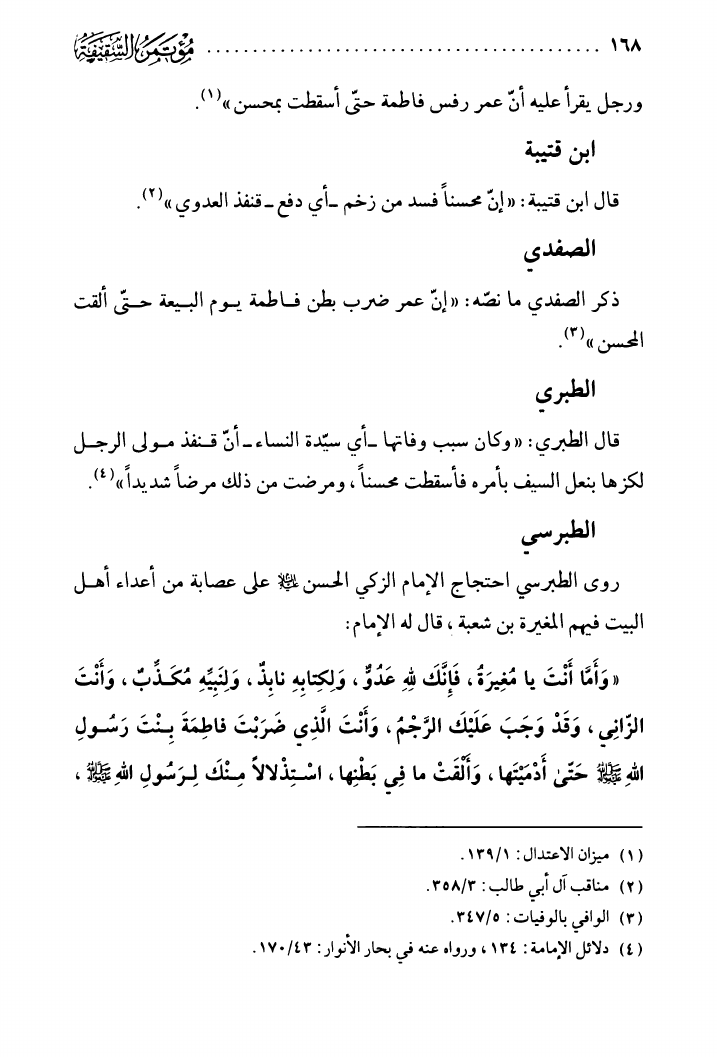 ١٦٨ ........................................ مؤتمر السقيفة
ورجل يقرأ عليه أنّ عمر رفس فاطمة حتّى أسقطت بمحسن»(١).
ابن قتيبة
قال ابن قتيبة: «إنّ محسناً فسد من زخم ـ أي دفع ـ قنفذ العدوي»(٢).
الصفدي
ذكر الصفدي ما نصّه: «إنّ عمر ضرب بطن فاطمة يوم البيعة حتّى ألقت
المحسن»(٣).
الطبري
قال الطبري: «وكان سبب وفاتها ـ أي سيّدة النساء ـ أنّ قنفذ مولى الرجل
لكزها بنعل السيف بأمره فأسقطت محسناً، ومرضت من ذلك مرضاً شديداً»(٤).
الطبرسي
روى الطبرسي احتجاج الإمام الزكي الحسن عليه السلام على عصابة من أعداء أهل
البيت فيهم المغيرة بن شعبة، قال له الإمام:
«وَأَمَّا أَنْتَ يا مُغِيرَةُ، فَإِنَّكَ لِلهِ عَدُوٌّ، وَلِكِتابِهِ نابِذٌ، وَلِنَبِيِّهِ مُكَذِّبٌ، وَأَنْتَ
الزّانِي، وَقَدْ وَجَبَ عَلَيْكَ الرَّجْمُ، وَأَنْتَ الَّذِي ضَرَبْتَ فاطِمَةَ بِنْتَ رَسُولِ
اللهِ ﷺ حَتّىٰ أَدْمَيْتَها، وَأَلْقَتْ ما فِي بَطْنِها، اسْتِذْلالاً مِنْكَ لِرَسُولِ اللهِ ﷺ،
(١) ميزان الاعتدال: ١٣٩/١.
(٢) مناقب آل أبي طالب: ٣٥٨/٣.
(٣) الوافي بالوفيات: ٣٤٧/٥.
(٤) دلائل الإمامة: ١٣٤، ورواه عنه في بحار الأنوار: ١٧٠/٤٣.